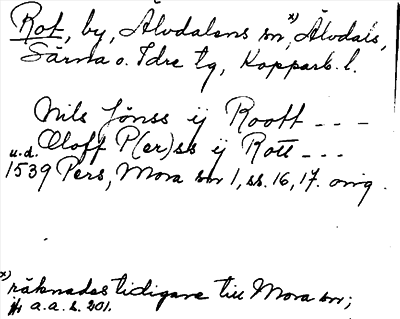 Rot, by, Älvdalens sn x), Älvdals,
Särna o. Idre tg, Kopparb. l.
Nils Jönss ij Rooth – – –
Oloff P(er)ss ij Rott – – –
u.d.
1539 Pers, Mora sn 1, ss. 16, 17. orig.
x) räknades tidigare till Mora sn;
jfr a.a. s. 201.